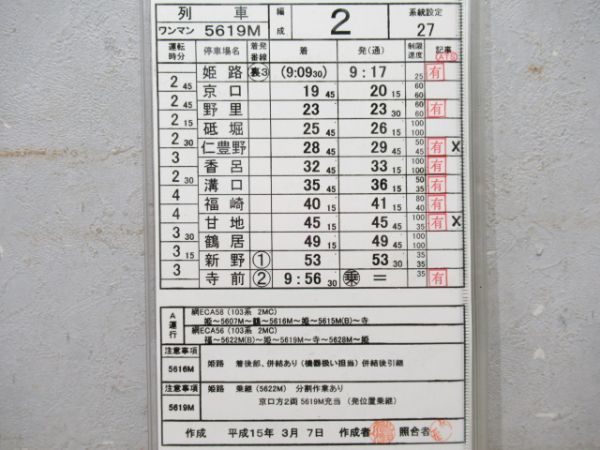 列 車 編成 2 系統設定
ワンマン 5619M 27
運転時分 停車場名 着発番線 着 発(通) 制限速度 記事 (ATS)
姫路 裏3 (9:09 30) 9:17 25 有
2 45
京口 19 45 20 15 60 60
2 45
野里 23 23 30 60 60 有
2 15
砥堀 25 45 26 15 100 100
2 30
仁豊野 28 45 29 45 50 45 有 X
3
香呂 32 45 33 15 100 100 有
2 30
溝口 35 45 36 15 50 35 有
4
福崎 40 15 41 15 80 40 有
4
甘地 45 15 45 45 100 100 有 X
3 30
鶴居 49 15 49 45 100 35
3 15
新野 ① 53 53 30 35
3
寺前 ② 9:56 30 乗 = 35 有
A運行 網ECA58 (103系 2MC)
姫~5607M~鶴~5616M~姫~5615M(B)~寺
網ECA56 (103系 2MC)
福~5622M(B)~姫~5619M~寺~5628M~姫
注意事項 5616M 姫路 着後部、併結あり (機器扱い担当) 併結後引継
注意事項 5619M 姫路 乗継 (5622M) 分割作業あり
京口方2両 5619M充当 (発位置乗継)
作成 平成15年 3月 7日 作成者 照合者